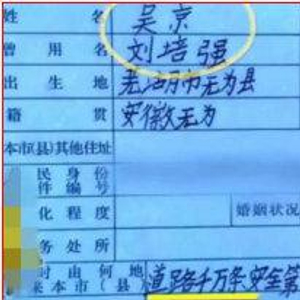 姓 名 吴京
曾 用 名 刘培强
出 生 地 芜湖市无为县
籍 贯 安徽无为
本市(县)其他住址
民身份
件编号
化程度 婚姻状况
务处所
时由何地
来本市(县) 道路千万条安全第